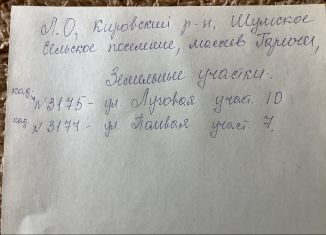 Л.О, Кировский р-н, Шумское
сельское поселение, массив Горгала,
Земельные участки.
кад. №3175 - ул. Луговая участ. 10
кад. №3177 - ул. участ. 7.